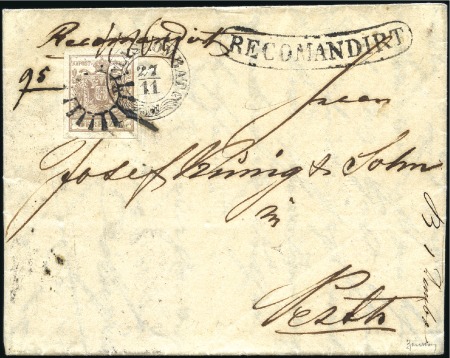 Recomandirt
RECOMANDIRT
95
27
11
Herrn
Josef König & Sohn
in
Pesth